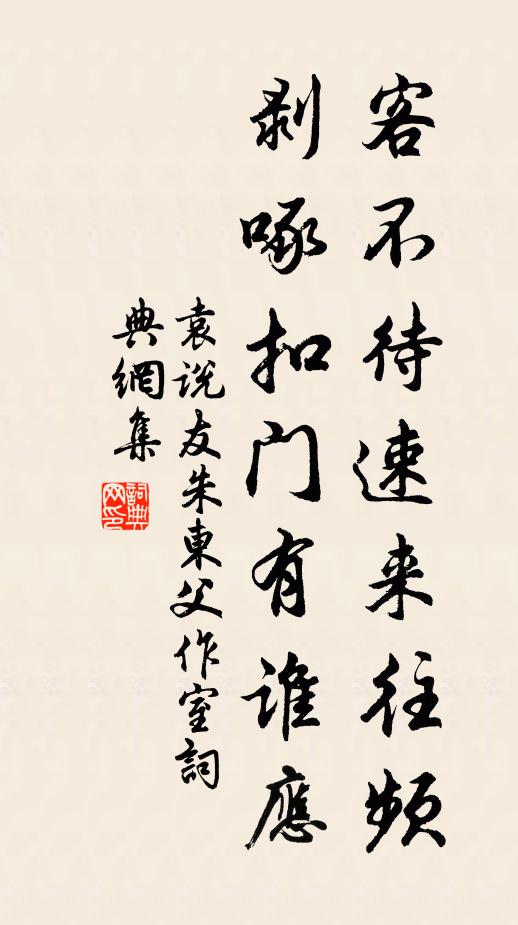 客不待速来往频
剥啄扣门有谁應
袁说友朱東父作室詞
典網集
詞典
网印